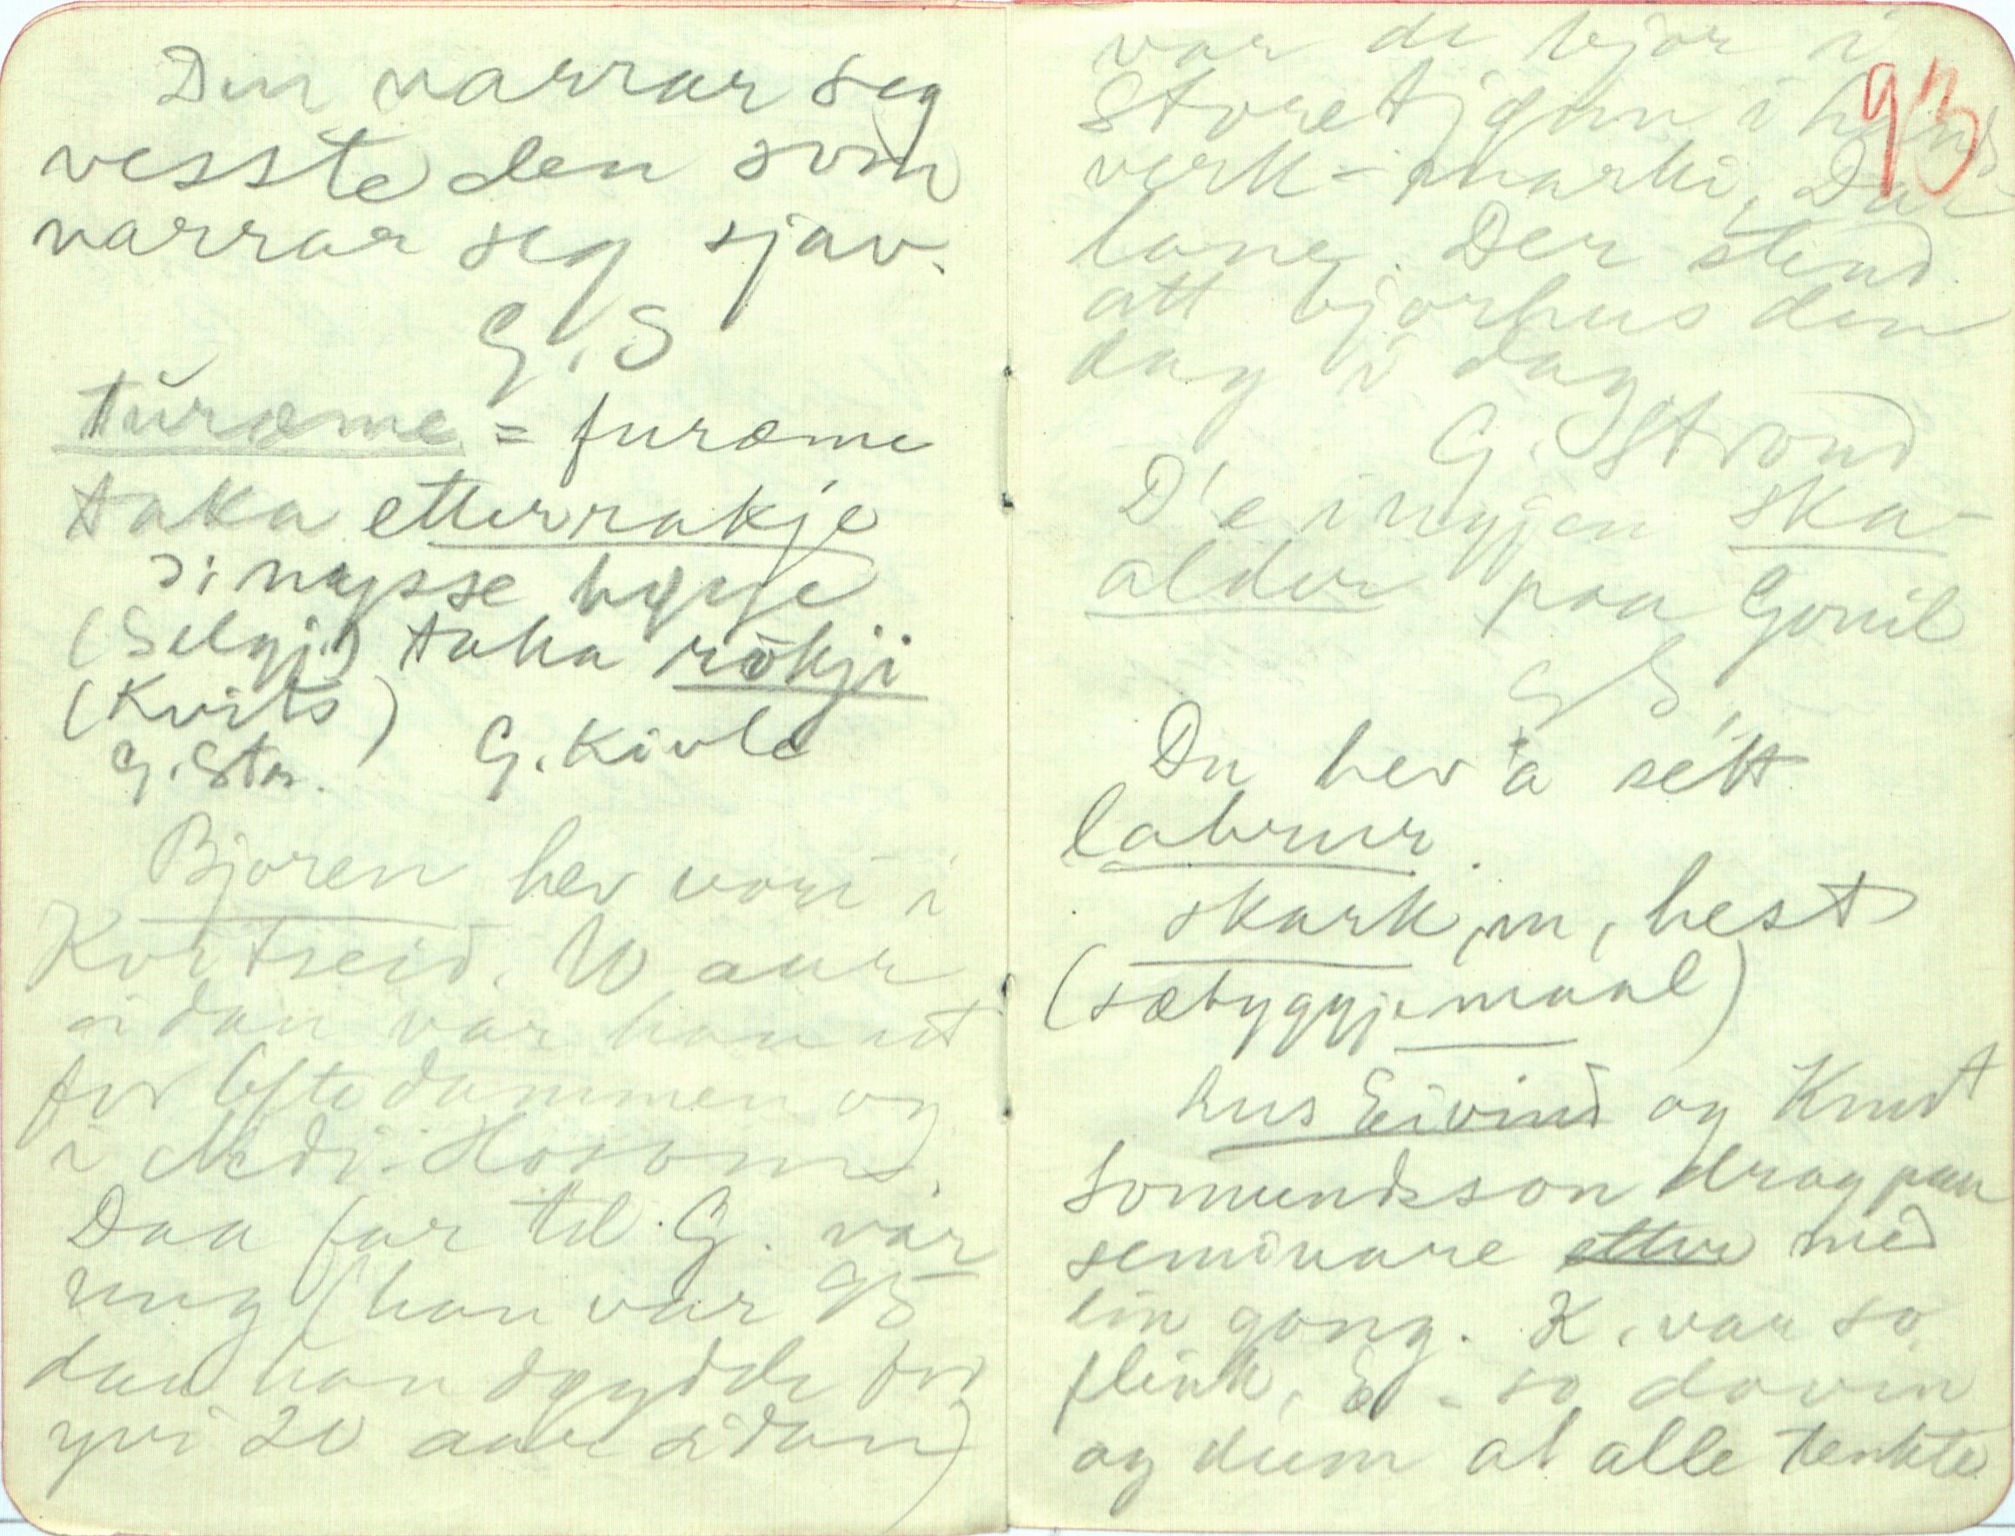 Den varrar seg
vesste den som
varrar seg sjav.
G. S
turæme = furæme
taka etterrakje
i nysse bygje
(Selgj) taka rökji
(Kvits)
G. Str. G. Kivle
Bjoren hev vori i
Kvitseid. 10 aar
sidan var han att
for Lofte dammen og
i
Daa far til G. var
ung (han var 95
daa han døydde for
yvi 20 aar sidan)
93
var de bjor i
Storetjønn i
verk-marki, Dal
lane. Der stend
att bjorhus den
dag i dag
G. Strond
D'e ingjen ska-
alder paa Gonil
G S.
Du hev a sétt
labrur.
skark, m, hest
(sæbyggjemaal)
hus Eivind og Knut
Somundsson drog paa
seminare etter med
ein gong. K. var so
flink, E - so dovin
og dum at alle tenkte